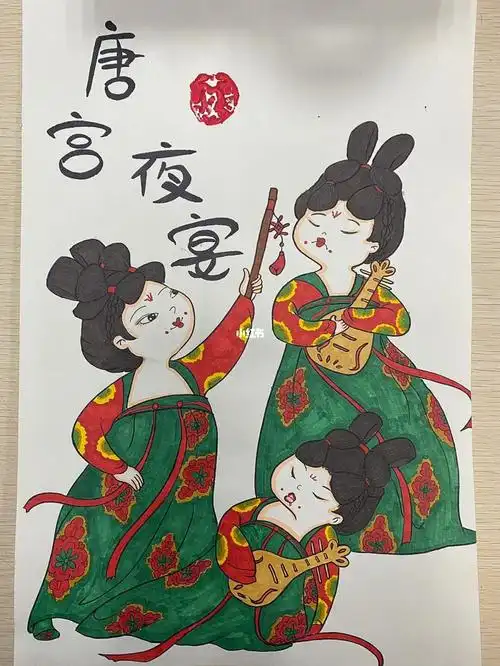 唐宫
夜宴
小红书